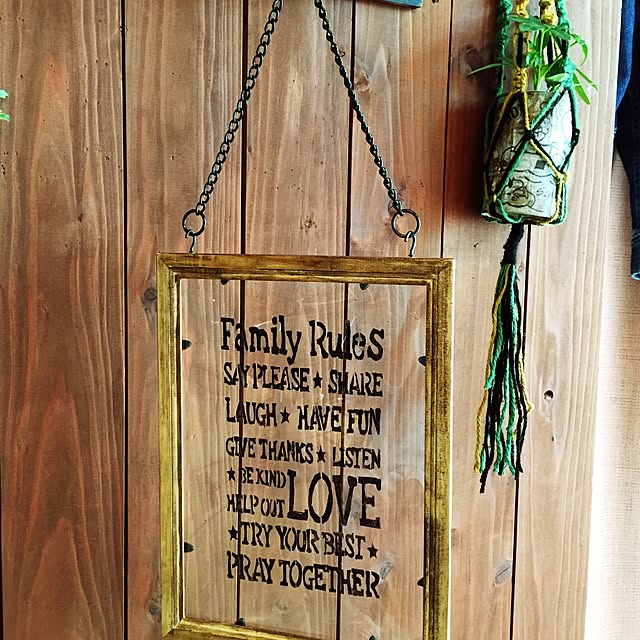 Family Rules
SAY PLEASE ★ SHARE
LAUGH ★ HAVE FUN
GIVE THANKS ★ LISTEN
★ BE KIND
HELP OUT LOVE
★ TRY YOUR BEST ★
PRAY TOGETHER